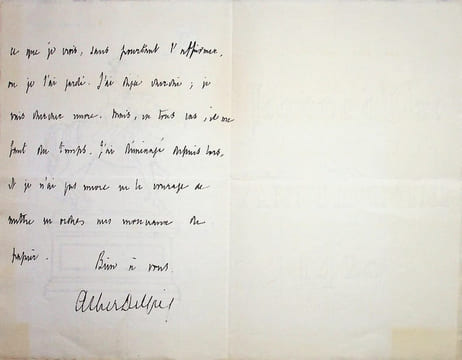 ce que je crois, sans pourtant l'affirmer,
ou je l'ai gardé. J'ai déjà cherché ; je
vais chercher encore. Mais, en tous cas, il me
faut du temps. J'ai déménagé depuis lors,
et je n'ai pas encore eu le courage de
mettre en ordre mes monceaux de
papier. Bien à vous.
Albert Delpit